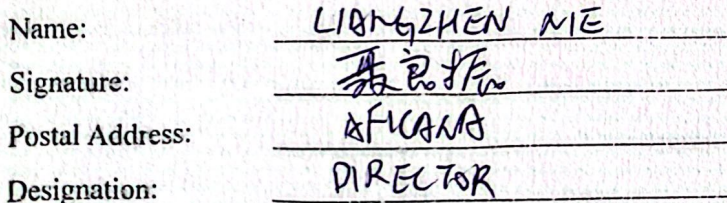 Name: LIANGZHEN NIE
Signature: 聂良振
Postal Address: AFICANA
Designation: DIRECTOR